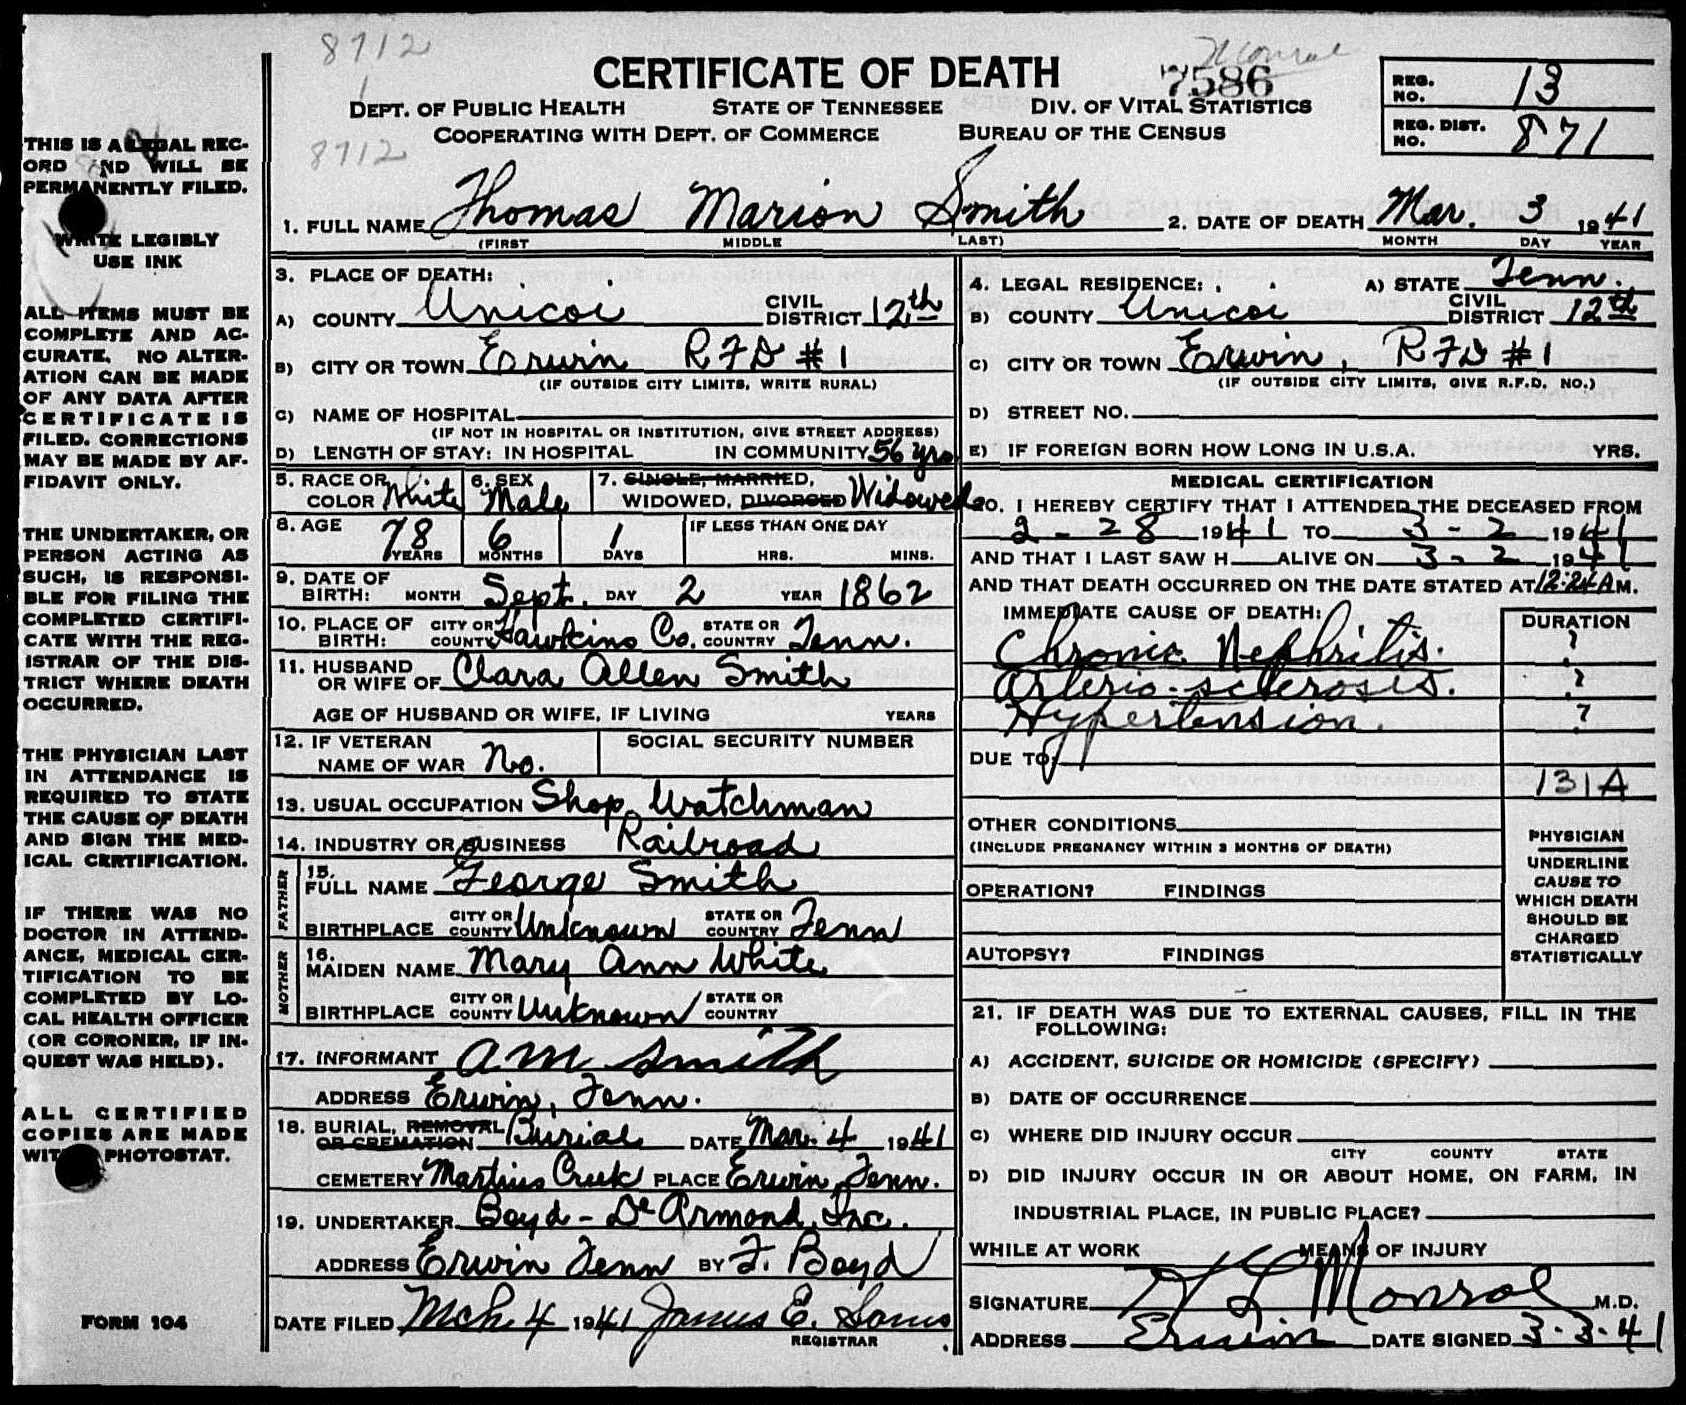 8712
1
N Monroe
CERTIFICATE OF DEATH
7586
REG. NO. 13
DEPT. OF PUBLIC HEALTH STATE OF TENNESSEE DIV. OF VITAL STATISTICS
COOPERATING WITH DEPT. OF COMMERCE BUREAU OF THE CENSUS
REG. DIST. NO. 871
8712
THIS IS A LEGAL REC-
ORD AND WILL BE
PERMANENTLY FILED.
WRITE LEGIBLY
USE INK
ALL ITEMS MUST BE
COMPLETE AND AC-
CURATE. NO ALTER-
ATION CAN BE MADE
OF ANY DATA AFTER
CERTIFICATE IS
FILED. CORRECTIONS
MAY BE MADE BY AF-
FIDAVIT ONLY.
THE UNDERTAKER, OR
PERSON ACTING AS
SUCH, IS RESPONSI-
BLE FOR FILING THE
COMPLETED CERTIFI-
CATE WITH THE REG-
ISTRAR OF THE DIS-
TRICT WHERE DEATH
OCCURRED.
THE PHYSICIAN LAST
IN ATTENDANCE IS
REQUIRED TO STATE
THE CAUSE OF DEATH
AND SIGN THE MED-
ICAL CERTIFICATION.
IF THERE WAS NO
DOCTOR IN ATTEND-
ANCE, MEDICAL CER-
TIFICATION TO BE
COMPLETED BY LO-
CAL HEALTH OFFICER
(OR CORONER, IF IN-
QUEST WAS HELD).
ALL CERTIFIED
COPIES ARE MADE
WITH PHOTOSTAT.
FORM 104
1. FULL NAME Thomas Marion Smith 2. DATE OF DEATH Mar. 3 1941
(FIRST MIDDLE LAST) MONTH DAY YEAR
3. PLACE OF DEATH:
A) COUNTY Unicoi CIVIL DISTRICT 12th
B) CITY OR TOWN Erwin RFD #1
(IF OUTSIDE CITY LIMITS, WRITE RURAL)
C) NAME OF HOSPITAL
(IF NOT IN HOSPITAL OR INSTITUTION, GIVE STREET ADDRESS)
D) LENGTH OF STAY: IN HOSPITAL IN COMMUNITY 56 yrs
5. RACE OR COLOR White 6. SEX Male 7. SINGLE, MARRIED, WIDOWED, DIVORCED Widowed
8. AGE 78 YEARS 6 MONTHS 1 DAYS IF LESS THAN ONE DAY HRS. MINS.
9. DATE OF BIRTH: MONTH Sept. DAY 2 YEAR 1862
10. PLACE OF BIRTH: CITY OR COUNTY Hawkins Co. STATE OR COUNTRY Tenn.
11. HUSBAND OR WIFE OF Clara Allen Smith
AGE OF HUSBAND OR WIFE, IF LIVING YEARS
12. IF VETERAN NAME OF WAR No. SOCIAL SECURITY NUMBER
13. USUAL OCCUPATION Shop Watchman
14. INDUSTRY OR BUSINESS Railroad
FATHER
15. FULL NAME George Smith
BIRTHPLACE CITY OR COUNTY Unknown STATE OR COUNTRY Tenn
MOTHER
16. MAIDEN NAME Mary Ann White
BIRTHPLACE CITY OR COUNTY Unknown STATE OR COUNTRY
17. INFORMANT A M Smith
ADDRESS Erwin, Tenn.
18. BURIAL, REMOVAL OR CREMATION Burial DATE Mar. 4 1941
CEMETERY Martins Creek PLACE Erwin, Tenn.
19. UNDERTAKER Boyd-DeArmond, Inc.
ADDRESS Erwin Tenn BY F. Boyd
DATE FILED Mch. 4 1941 James E. Sams
REGISTRAR
4. LEGAL RESIDENCE: A) STATE Tenn.
B) COUNTY Unicoi CIVIL DISTRICT 12th
C) CITY OR TOWN Erwin, RFD #1
(IF OUTSIDE CITY LIMITS, GIVE R.F.D. NO.)
D) STREET NO.
E) IF FOREIGN BORN HOW LONG IN U.S.A. YRS.
MEDICAL CERTIFICATION
20. I HEREBY CERTIFY THAT I ATTENDED THE DECEASED FROM
2-28 1941 TO 3-2 1941
AND THAT I LAST SAW H ALIVE ON 3-2 1941
AND THAT DEATH OCCURRED ON THE DATE STATED AT 12:24 A M.
IMMEDIATE CAUSE OF DEATH: DURATION
Chronic Nephritis. ?
Arterio-sclerosis. ?
Hypertension. ?
DUE TO:
131A
OTHER CONDITIONS
(INCLUDE PREGNANCY WITHIN 3 MONTHS OF DEATH)
OPERATION? FINDINGS
AUTOPSY? FINDINGS
PHYSICIAN
UNDERLINE
CAUSE TO
WHICH DEATH
SHOULD BE
CHARGED
STATISTICALLY
21. IF DEATH WAS DUE TO EXTERNAL CAUSES, FILL IN THE
FOLLOWING:
A) ACCIDENT, SUICIDE OR HOMICIDE (SPECIFY)
B) DATE OF OCCURRENCE
C) WHERE DID INJURY OCCUR
CITY COUNTY STATE
D) DID INJURY OCCUR IN OR ABOUT HOME, ON FARM, IN
INDUSTRIAL PLACE, IN PUBLIC PLACE?
WHILE AT WORK MEANS OF INJURY
SIGNATURE H L Monroe M.D.
ADDRESS Erwin DATE SIGNED 3-3-41